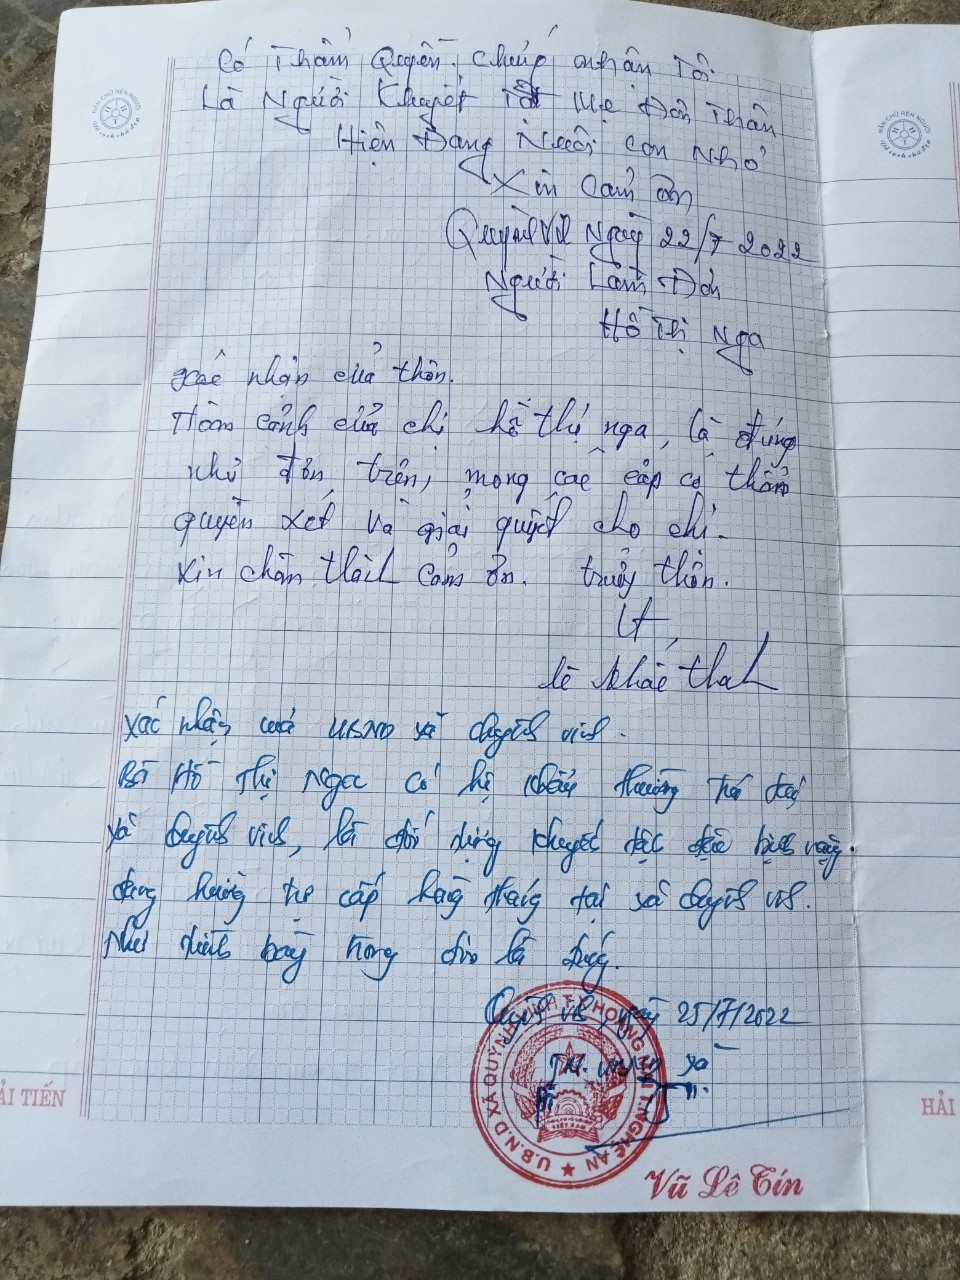 Có Thẩm Quyền. chứng nhận Tôi
Là Người Khuyết Tật Mẹ Đơn Thân
Hiện Đang Nuôi con Nhỏ
Xin Cảm ơn
Quỳnh Vinh Ngày 22/7 2022
Người Làm Đơn
Hồ Thị Nga
xác nhận của thôn.
Hoàn cảnh của chị hồ thị nga, là đúng
như đơn trên, mong các cấp có thẩm
quyền xét và giải quyết cho chị.
xin chân thành cảm ơn. trưởng thôn.
lê khắc thanh
xác nhận của UBND xã Quỳnh Vinh.
Bà Hồ Thị Nga có hộ khẩu thường trú tại
xã Quỳnh Vinh, là đối tượng khuyết tật đặc biệt nặng.
đang hưởng trợ cấp hàng tháng tại xã Quỳnh Vinh.
Như trình bày trong đơn là đúng.
Quỳnh Vinh, ngày 25/7/2022
TM. UBND xã
U.B.N.D XÃ QUỲNH VINH T.X HOÀNG MAI T.NGHỆ AN
VIỆT NAM
Vũ Lê Tín
HẢI TIẾN
HẢI
NẮN CHỮ RÈN NGƯỜI
Vở sạch chữ đẹp
NẮN CHỮ RÈN NGƯỜI
Vở sạch chữ đẹp